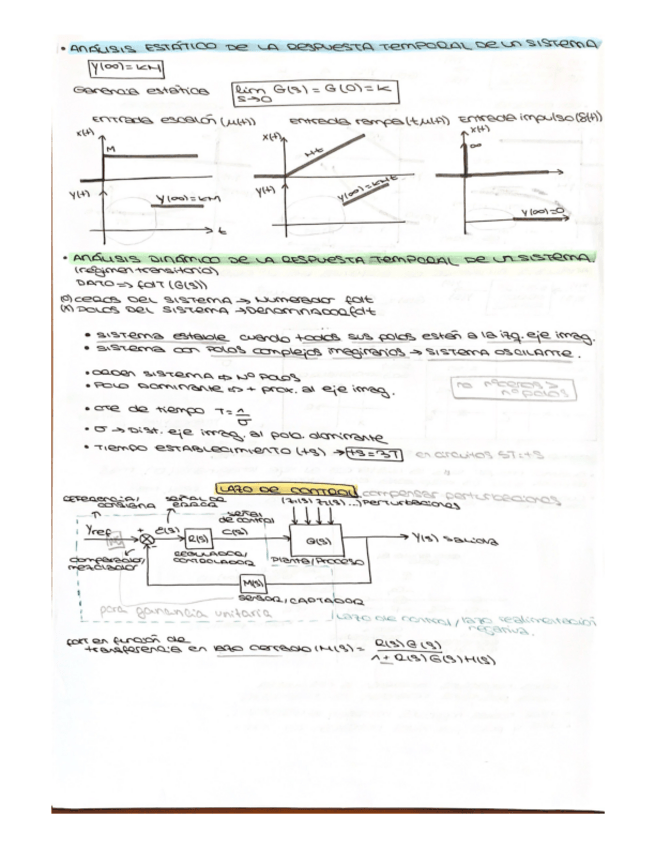 • ANÁLISIS ESTÁTICO DE LA RESPUESTA TEMPORAL DE UN SISTEMA
Y(∞) = KM
Ganancia estática lim G(s) = G(0) = K
s→0
entrada escalón (u(t)) entrada rampa (t u(t)) entrada impulso (δ(t))
x(t) x(t) x(t)
M Mt ∞
y(t) y(∞) = KM y(t) y(∞) = KMt y(∞) = 0
t
• ANÁLISIS DINÁMICO DE LA RESPUESTA TEMPORAL DE UN SISTEMA
(régimen transitorio)
DATO => fdt (G(s))
(o) CEROS DEL SISTEMA → Numerador fdt
(x) POLOS DEL SISTEMA → Denominador fdt
• SISTEMA estable cuando todos sus polos están a la izq. eje imag.
• SISTEMA con polos complejos imaginarios → SISTEMA OSCILANTE.
• ORDEN SISTEMA <=> Nº POLOS
• POLO DOMINANTE <=> + prox. al eje imag.
no nº ceros >
nº polos
• cte de tiempo T = 1/σ
• σ → Dist. eje imag. al polo dominante
• TIEMPO ESTABLECIMIENTO (ts) → ts = 3T en circuitos 5T = ts
LAZO DE CONTROL compensar perturbaciones
REFERENCIA/ CONSIGNA SEÑAL DE ERROR señal de control (Z1(s) Z2(s) ...) PERTURBACIONES
Yref + - ε(s) R(s) C(s) G(s) Y(s) salida
comparador/ mezclador REGULADOR/ CONTROLADOR PLANTA/PROCESO
M(s)
SENSOR/CAPTADOR
para ganancia unitaria
LAZO DE CONTROL / lazo realimentación
negativa.
fdt en función de
transferencia en lazo cerrado (M(s) = R(s)G(s) / 1 + R(s)G(s)H(s)